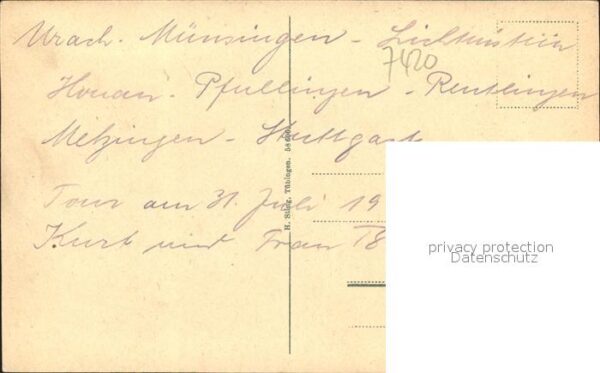 Urach - Münsingen - Lichtenstein
7420
Honau - Pfullingen - Reutlingen
Metzingen - Stuttgart
Tour am 31. Juli 19
Kurt und Frau
H. Sting, Tübingen.
privacy protection
Datenschutz